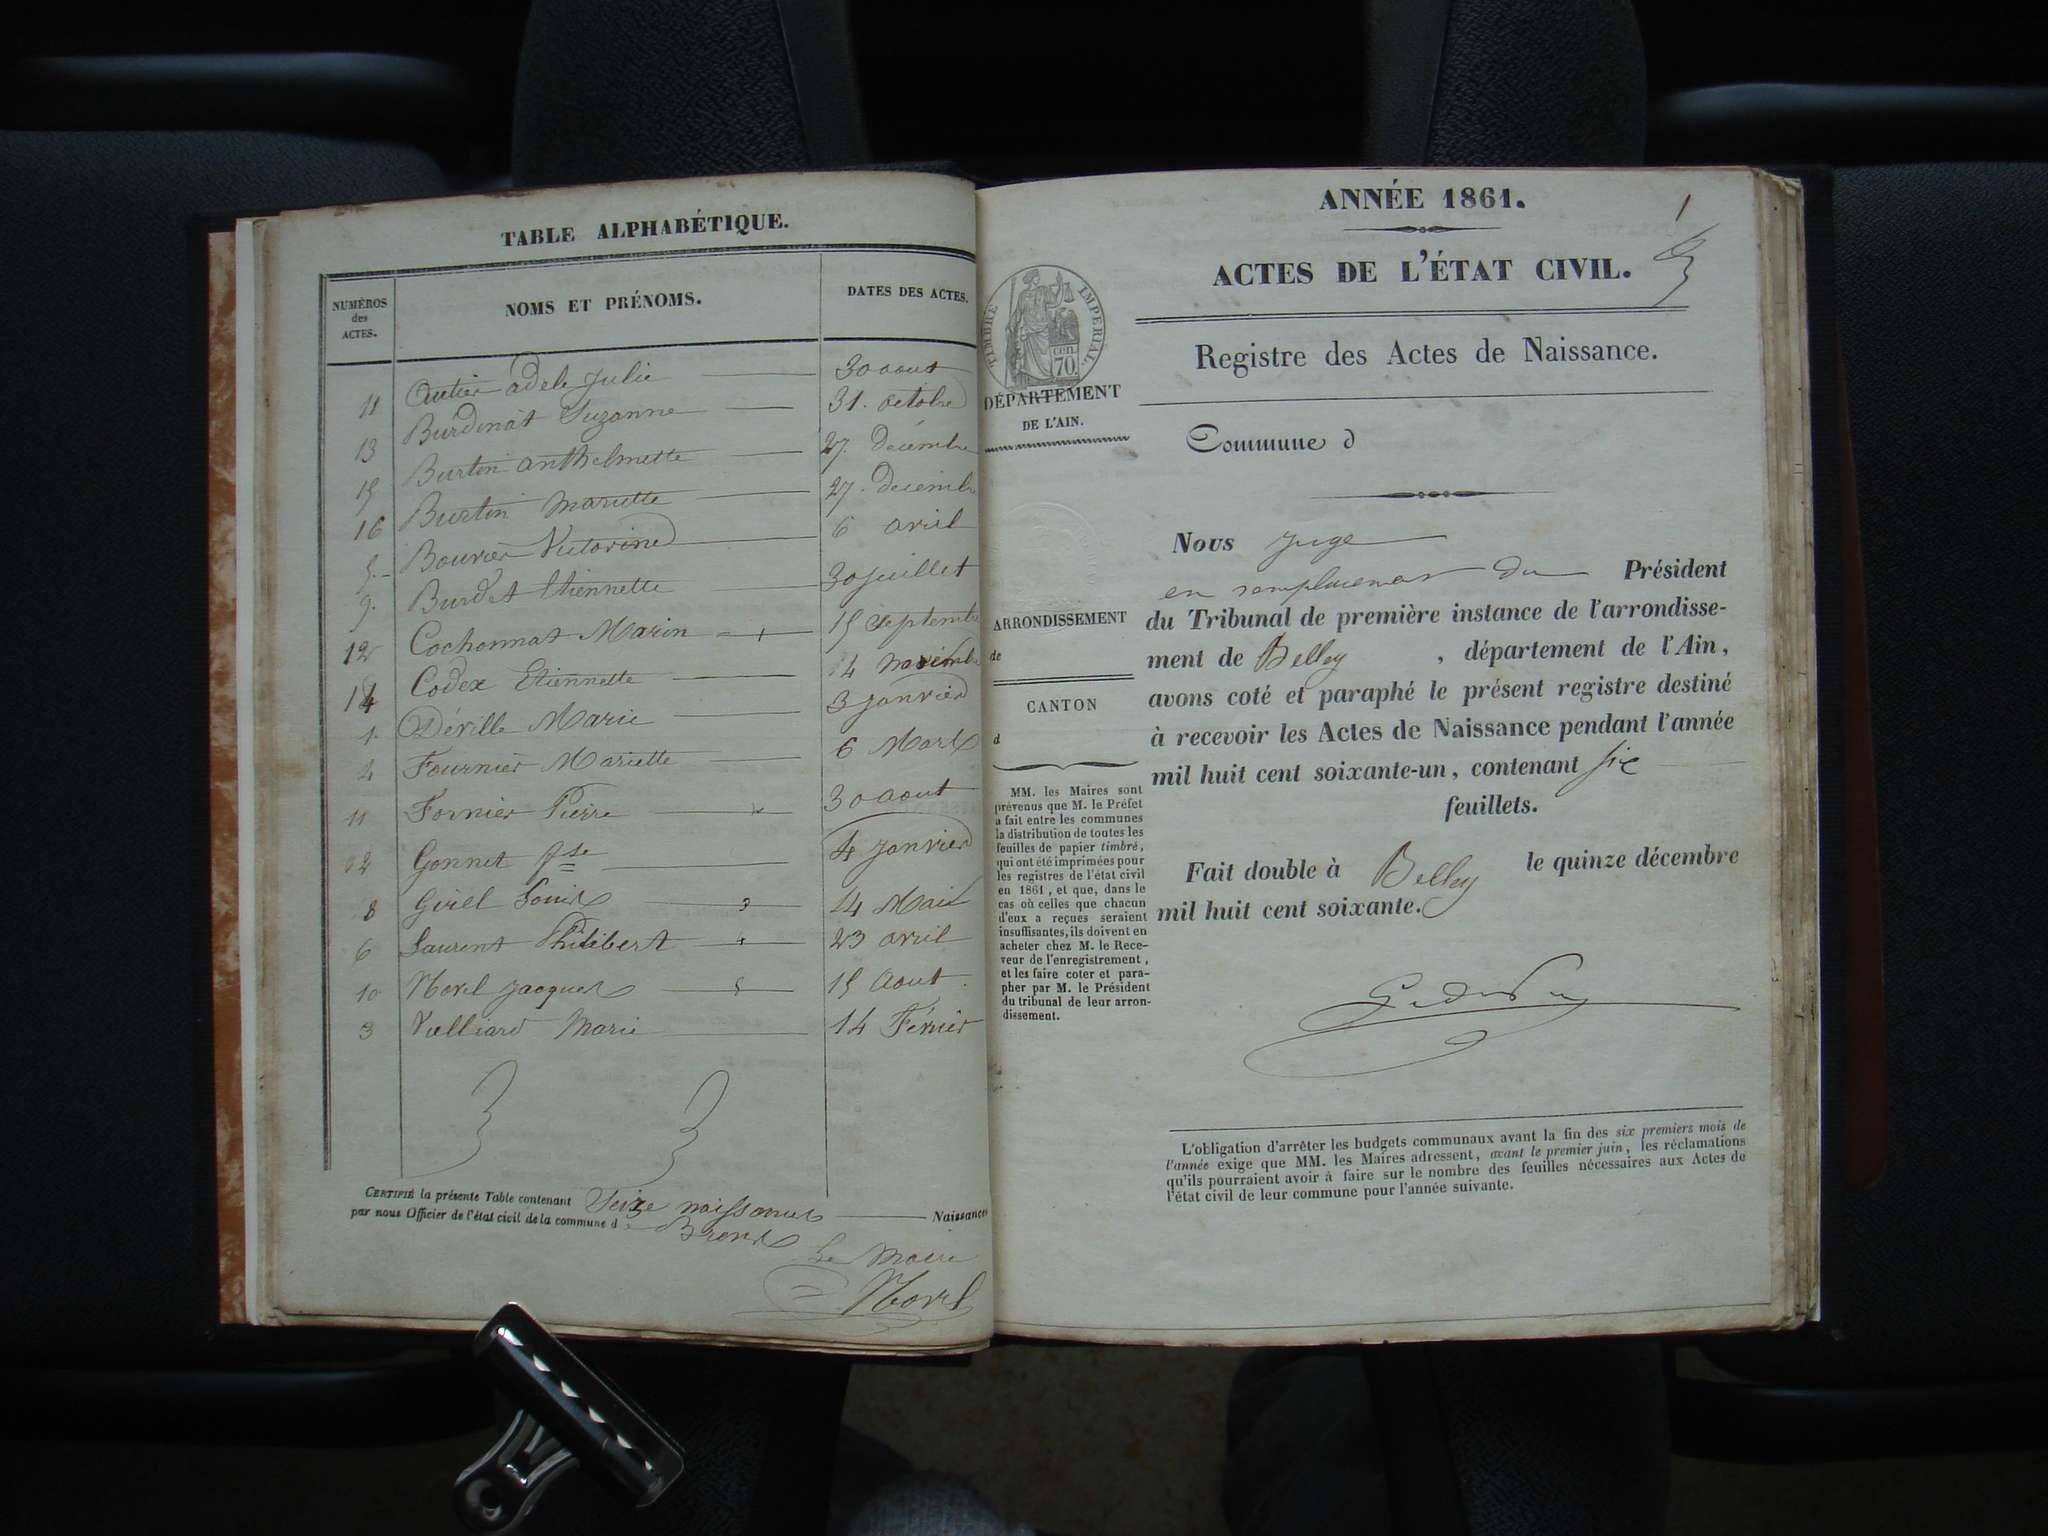 TABLE ALPHABÉTIQUE.
NUMÉROS des ACTES. NOMS ET PRÉNOMS. DATES DES ACTES.
11 Autier adele Julie 30 aout
13 Burdinat Suzanne 31. octobre
15 Burtin anthelmette 27. décembre
16 Burtin Mariette 27. décembre
5. Bouvier Victorine 6 avril
9. Burdet Etiennette 30 juillet
12 Cochonnat Marin 15 septembre
14 Codex Etiennette 14 novembre
1. Déville Marie 3 janvier
4 Fournier Mariette 6 Mars
11 Fornier Pierre 30 aout
2 Gonnet fse 4 janvier
8 Girel Louis 14 Mai
6 Laurent Philibert 23 avril
10 Morel Jacques 15 Aout.
3 Vulliard Marie 14 Février
CERTIFIÉ la présente Table contenant Seize naissances Naissances
par nous Officier de l'état civil de la commune de Brens
Le Maire
Morel
1
ANNÉE 1861.
ACTES DE L'ÉTAT CIVIL.
Registre des Actes de Naissance.
TIMBRE IMPÉRIAL
70 cen
DÉPARTEMENT
DE L'AIN.
ARRONDISSEMENT
de
CANTON
d
MM. les Maires sont
prévenus que M. le Préfet
a fait entre les communes
la distribution de toutes les
feuilles de papier timbré,
qui ont été imprimées pour
les registres de l'état civil
en 1861, et que, dans le
cas où celles que chacun
d'eux a reçues seraient
insuffisantes, ils doivent en
acheter chez M. le Rece-
veur de l'enregistrement,
et les faire coter et para-
pher par M. le Président
du tribunal de leur arron-
dissement.
Commune d
Nous Juge
en remplacement du Président
du Tribunal de première instance de l'arrondisse-
ment de Belley, département de l'Ain,
avons coté et paraphé le présent registre destiné
à recevoir les Actes de Naissance pendant l'année
mil huit cent soixante-un, contenant six
feuillets.
Fait double à Belley le quinze décembre
mil huit cent soixante.
L'obligation d'arrêter les budgets communaux avant la fin des six premiers mois de
l'année exige que MM. les Maires adressent, avant le premier juin, les réclamations
qu'ils pourraient avoir à faire sur le nombre des feuilles nécessaires aux Actes de
l'état civil de leur commune pour l'année suivante.